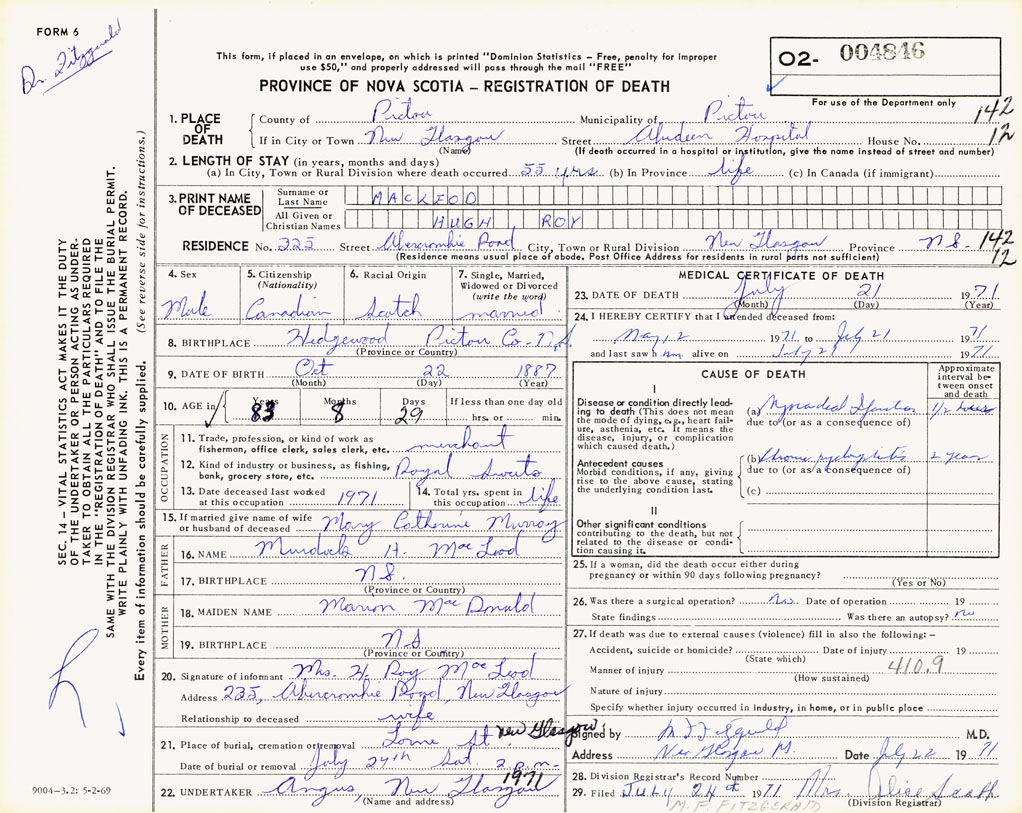 FORM 6
Dr. Fitzgerald
This form, if placed in an envelope, on which is printed "Dominion Statistics – Free, penalty for improper
use $50," and properly addressed will pass through the mail "FREE"
02- 004846
PROVINCE OF NOVA SCOTIA – REGISTRATION OF DEATH
For use of the Department only
1. PLACE OF DEATH County of Pictou Municipality of Pictou 142
If in City or Town New Glasgow Street Aberdeen Hospital House No. 12
(Name) (If death occurred in a hospital or institution, give the name instead of street and number)
2. LENGTH OF STAY (in years, months and days)
(a) In City, Town or Rural Division where death occurred 55 yrs (b) In Province life (c) In Canada (if immigrant)
3. PRINT NAME OF DECEASED Surname or Last Name MACLEOD
All Given or Christian Names HUGH ROY
RESIDENCE No. 225 Street Abercrombie Road City, Town or Rural Division New Glasgow Province N S. 142
(Residence means usual place of abode. Post Office Address for residents in rural parts not sufficient) 12
4. Sex Male
5. Citizenship (Nationality) Canadian
6. Racial Origin Scotch
7. Single, Married, Widowed or Divorced (write the word) married
8. BIRTHPLACE Pictou Co- N.S.
(Province or Country)
9. DATE OF BIRTH Oct 22 1887
(Month) (Day) (Year)
10. AGE in Years 83 Months 8 Days 29 If less than one day old
hrs. or min.
OCCUPATION
11. Trade, profession, or kind of work as
fisherman, office clerk, sales clerk, etc. merchant
12. Kind of industry or business, as fishing,
bank, grocery store, etc. Royal Sweets
13. Date deceased last worked
at this occupation 1971
14. Total yrs. spent in
this occupation life
15. If married give name of wife
or husband of deceased Mary Catherine Murray
FATHER
16. NAME Murdoch H. MacLeod
17. BIRTHPLACE N S.
(Province or Country)
MOTHER
18. MAIDEN NAME Marion MacDonald
19. BIRTHPLACE N S
(Province or Country)
20. Signature of informant Mrs. H. Roy MacLeod
Address 235, Abercrombie Road, New Glasgow
Relationship to deceased wife
21. Place of burial, cremation or removal Lorne St. New Glasgow
Date of burial or removal July 24th Sat. 2 p.m. 1971
22. UNDERTAKER Angus, New Glasgow
(Name and address)
MEDICAL CERTIFICATE OF DEATH
23. DATE OF DEATH July 21 1971
(Month) (Day) (Year)
24. I HEREBY CERTIFY that I attended deceased from:
May 12 1971 to July 21 1971
and last saw him alive on July 21 1971
CAUSE OF DEATH
Approximate interval between onset and death
I
Disease or condition directly leading to death (This does not mean the mode of dying, e.g., heart failure, asthenia, etc. It means the disease, injury, or complication which caused death.)
(a) 1/2 hour
due to (or as a consequence of)
Antecedent causes
Morbid conditions, if any, giving rise to the above cause, stating the underlying condition last.
(b) Chronic 2 years
due to (or as a consequence of)
(c)
II
Other significant conditions contributing to the death, but not related to the disease or condition causing it.
25. If a woman, did the death occur either during
pregnancy or within 90 days following pregnancy?
(Yes or No)
26. Was there a surgical operation? No. Date of operation 19
State findings Was there an autopsy? No
27. If death was due to external causes (violence) fill in also the following: –
Accident, suicide or homicide? Date of injury 19
(State which)
Manner of injury 410.9
(How sustained)
Nature of injury
Specify whether injury occurred in industry, in home, or in public place
Signed by M F Fitzgerald M.D.
Address New Glasgow Date July 22 1971
28. Division Registrar's Record Number
29. Filed JULY 24th 1971 Mrs. Alice Scott
M. F. FITZGERALD (Division Registrar)
SEC. 14 – VITAL STATISTICS ACT MAKES IT THE DUTY
OF THE UNDERTAKER OR PERSON ACTING AS UNDER-
TAKER TO OBTAIN ALL THE PARTICULARS REQUIRED
IN THE "REGISTRATION OF DEATH" AND TO FILE THE
SAME WITH THE DIVISION REGISTRAR WHO SHALL ISSUE THE BURIAL PERMIT.
WRITE PLAINLY WITH UNFADING INK. THIS IS A PERMANENT RECORD.
Every item of information should be carefully supplied. (See reverse side for instructions.)
9004-3.2: 5-2-69